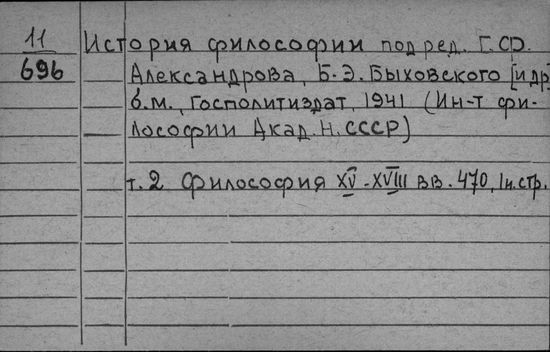 11
696
История философии под ред. Г.Ф.
Александрова, Б.Э. Быховского [и др]
б.м., Госполитиздат, 1941 (Ин-т фи-
лософии Акад. Н. СССР)
т. 2 Философия XV-XVIII вв. 470, 1н. стр.